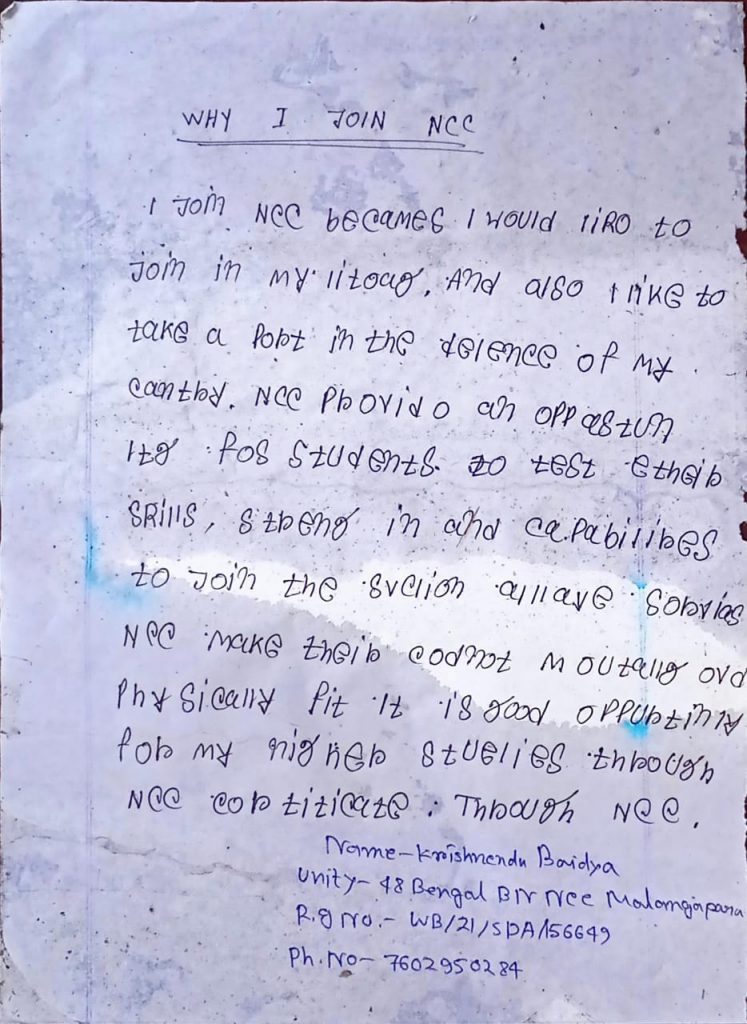 WHY I JOIN NCC
I Join NCC becames I would liRo to
join in my litoag. And also I like to
take a Pobt in the defence of my
canthy. NCC Pbovido an oppastun
itg fos students to test etheib
SRills, stbeng in and capabilibes
to join the svclion allave sobvias
NCC make theib codnot moutally ovd
Physically fit It is good oppubtinly
fob my nigheb stuelies thbough
NCC cobtiticate. Thbough NCC.
Name-Krishnendu Baidya
Unity- 48 Bengal BN NCC Malangapara
R.g No.- WB/21/SDA/156649
Ph.No- 7602950284